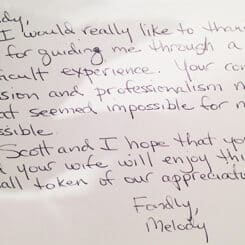 dy,
I would really like to than
for guiding me through a
icult experience. Your com
sion and professionalism m
at seemed impossible for m
ssible.
Scott and I hope that yo
d your wife will enjoy thi
all token of our appreciat
Fondly,
Melody